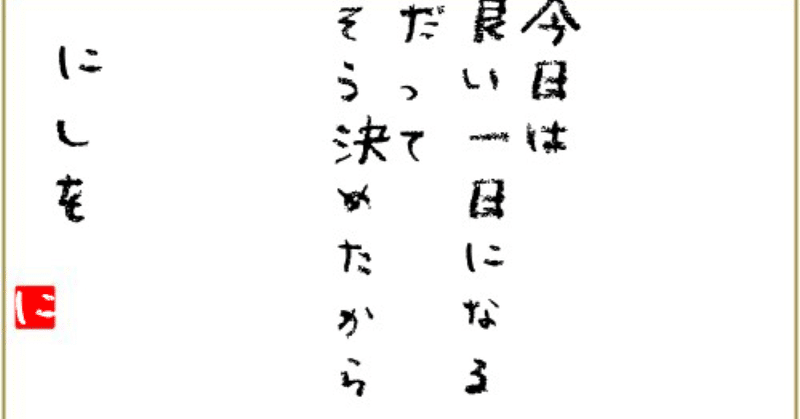 今日は
良い一日になる
だって
そう決めたから
にしを
に